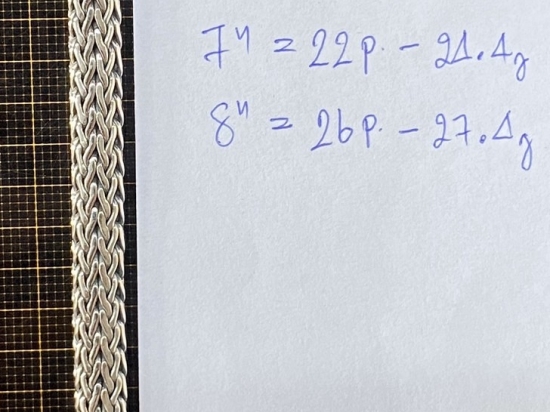 7" = 22p. - 21.1g
8" = 26p. - 27.1g